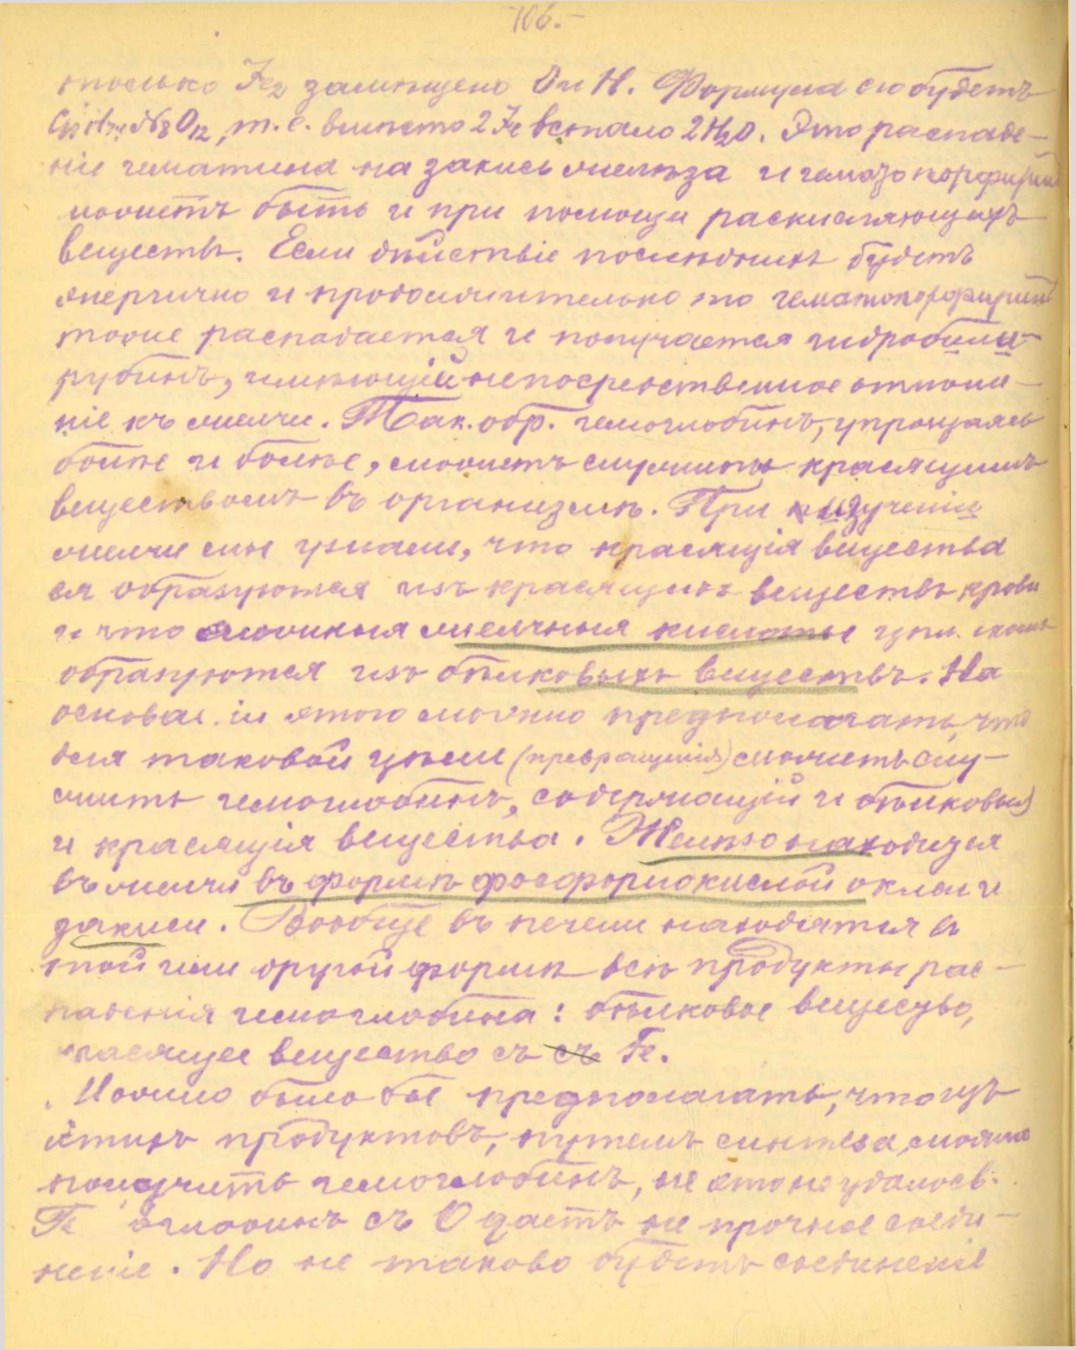 106.
только Fe₂ замѣщено O и H. Формула его будетъ
N₈O₁₂, т. е. вмѣсто 2 Fe встало 2H₂O. Это распаде-
ніе гематина на закись желѣза и гематопорфиринъ
можетъ быть и при помощи раскисляющихъ
веществъ. Если дѣйствіе послѣднихъ будетъ
энергично и продолжительно то гематопорфиринъ
тоже распадается и получается гидробили-
рубинъ, имѣющій непосредственное отноше-
ніе къ желчи. Так. обр. гемоглобинъ, упрощаясь
болѣе и болѣе, можетъ служить красящимъ
веществомъ въ организмѣ. При изученіи
желчи мы узнали, что красящія вещества
ея образуются изъ красящихъ веществъ крови
и что сложныя желчныя кислоты
образуются изъ бѣлковыхъ веществъ. На
основаніи этого можно предполагать, что
для таковой цѣли (превращенія) можетъ слу-
жить гемоглобинъ, содержащій и бѣлковыя
и красящія вещества. Желѣзо находится
въ желчи въ формѣ фосфорнокислой окиси и
закиси. Вообще въ печени находятся въ
той или другой формѣ всѣ продукты рас-
паденія гемоглобина: бѣлковое вещество,
красящее вещество съ съ Fe.
Можно было бы предполагать, что изъ
этихъ продуктовъ, путемъ синтеза, можно
получить гемоглобинъ, но это не удалось.
Гемоглобинъ съ O даетъ не прочное соеди-
неніе. Но не таково будетъ соединеніе